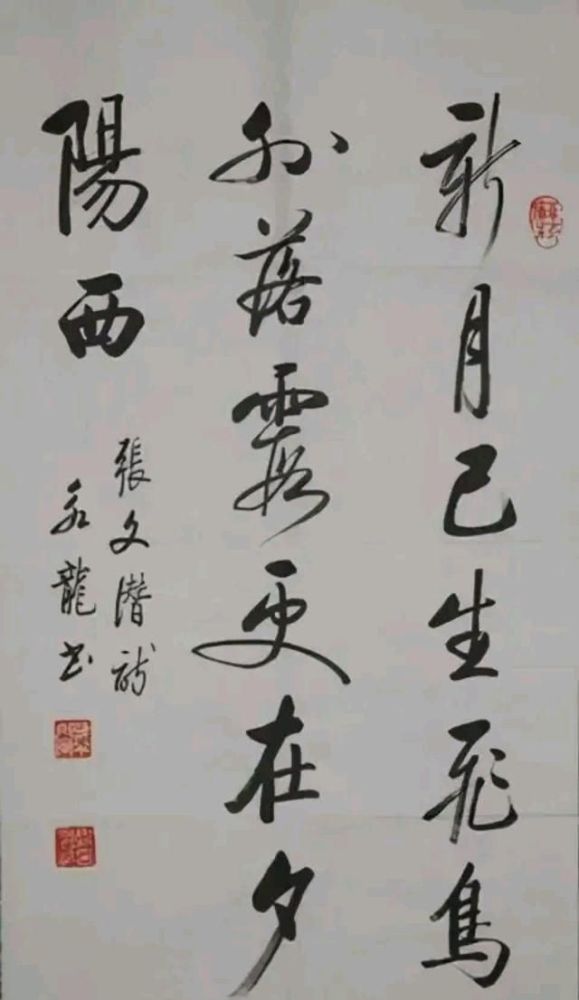 新月已生飛鳥
外落霞更在夕
陽西
張文潛詩
永龍书